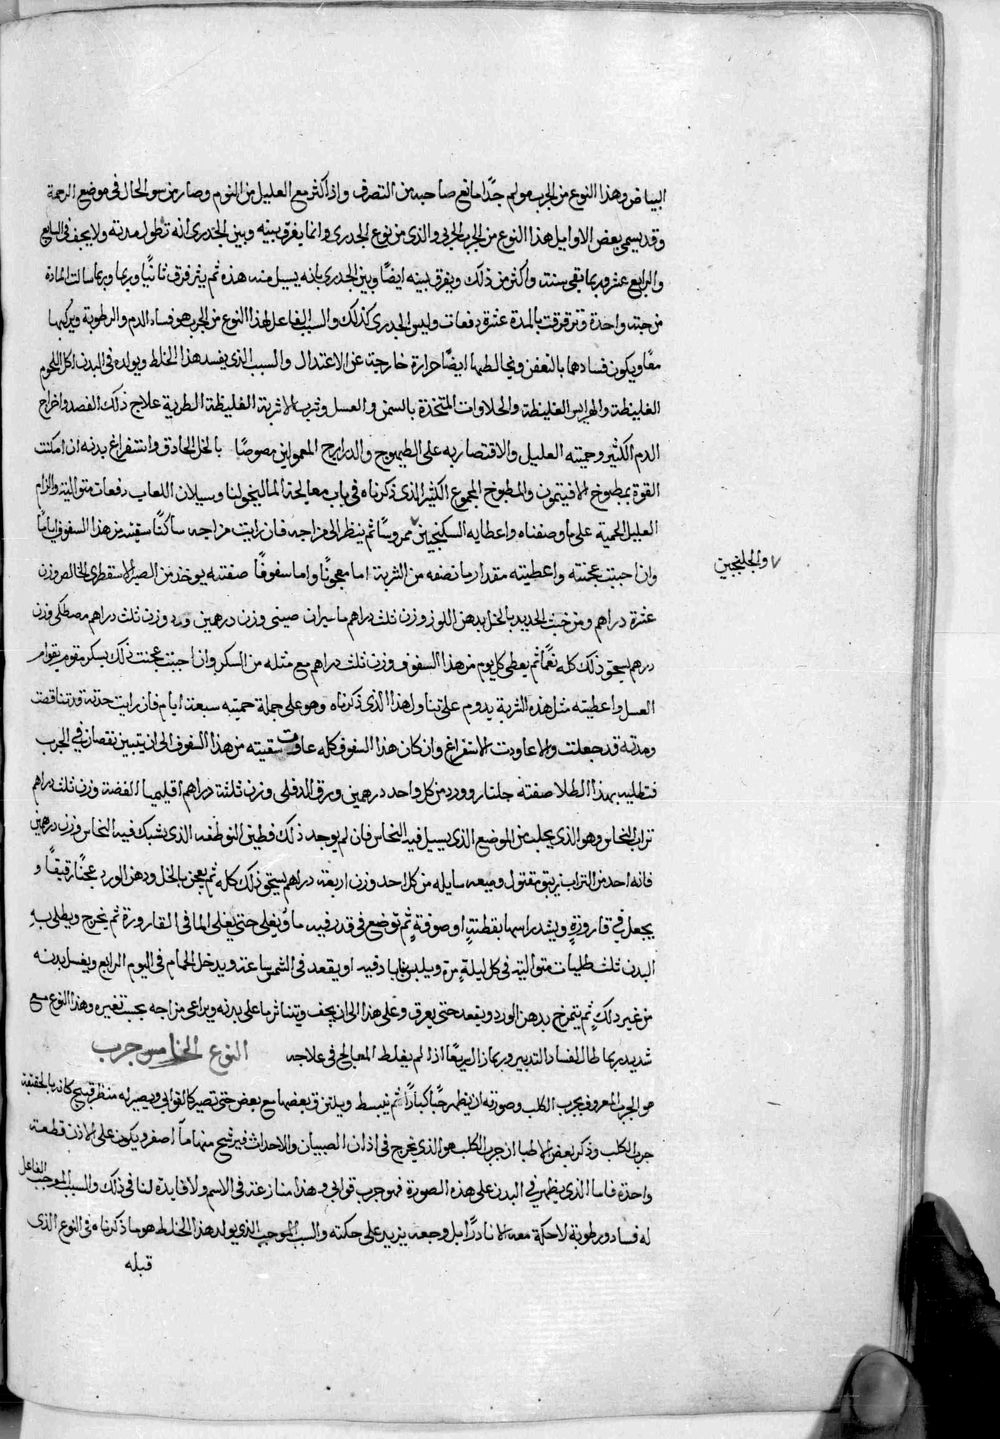 البياض وهذا النوع من الجرب مولم جدًا مانع صاحبه من التصرف واذا كثر منع العليل من النوم وصار من سو الحال في موضع الرحمة
وقد يسمي بعض الاوايل هذا النوع من الجرب الحرفي والذي من نوع الجدري وانما يفرق بينه وبين الجدري انه تطول مدته ولا يجف في السابع
والرابع عشر وربما بقي سنة واكثر من ذلك ويفرق بينه ايضًا وبين الجدري بانه يسيل منه هذه ثم يتفرق ثانيًا وربما سالت المادة
من حبة واحدة وترقرقت بالمدة عشرة دفعات وليس الجدري كذلك والسبب الفاعل لهذا النوع من الجرب هو فساد الدم والرطوبة وتركبها
معًا ويكون فسادهما بالتعفن ويخالطهما ايضًا حرارة خارجة عن الاعتدال والسبب الذي يفسد هذا الخلط ويولده في البدن اكل اللحوم
الغليظة والهرايس الغليظة والحلاوات المتخذة بالسمن والعسل وشرب الاشربة الغليظة الطرية علاج ذلك الفصد واخراج
الدم الكثير وحمية العليل والاقتصار به على الطيهوج والدراريج المعمولين مصوصًا بالخل الحاذق واستفراغ بدنه ان امكنت
القوة بمطبوخ الافيتمون والمطبوخ المجموع الكثير الذي ذكرناه في باب معالجة الماليخوليا وسيلان اللعاب دفعات متوالية والزام
العليل الحمية على ما وصفناه واعطايه السكنجبين ممروسًا ثم ينظر الى مزاجه فان رايت مزاجه ساكنًا سقيته من هذا السفوف اياما
والجلنجبين
وان احببت عجنته واعطيته مقدار ما نصفه من الشربة اما معجونًا واما سفوفًا صفته يوخذ من الصبر الاسقطري الخالص وزن
عشرة دراهم ومن خبث الحديد بالخل بدهن اللوز وزن ثلث دراهم ماميران صيني وزن درهمين ورد وزن ثلث دراهم مصطكي وزن
درهم يسحق ذلك كله نعمًا ثم يعطي كل يوم من هذا السفوف وزن ثلث دراهم مع مثله من السكر وان احببت عجنت ذلك بسكر مقوم بقوام
العسل واعطيته مثل هذه الشربة يدوم على تناول هذا الذي ذكرناه وهو على جملة حميته سبعة ايام فان رايت حدته قد تناقصت
ومدته قد جعلت والا عاودت الاستفراغ وان كان هذا السفوف كله عاقت سقيته من هذا السفوف الى ان يتبين نقصان في الجرب
فتطليه بهذا الطلا صفته جلنار وورد من كل واحد درهمين ورق الدفلى وزن ثلثة دراهم اقليميا الفضة وزن ثلث دراهم
تراب النحاس وهو الذي يجلب من الموضع الذي يسيل فيه النحاس فان لم يوجد ذلك فطين البوطقه الذي يشبك فيه النحاس وزن درهمين
فانه احد من التراب زيبق مقتول وميعه سايله من كل احد وزن اربعة دراهم يسحق ذلك كله ثم يعجن بالخل ودهن الورد عجنًا رقيقًا و
يجعل في قارورة ويشد راسها بقطنة او صوفة ثم توضع في قدر فيه ماء ويغلي حتى يغلي الما في القارورة ثم يخرج ويطلى به
البدن ثلث طليات متوالية في كل ليلة مرة ويلبس ثيابا دفيه او يقعد في الشمس ساعة ويدخل الحمام في اليوم الرابع ويغسل بدنه
من غير دلك ثم يتمرخ بدهن الورد ويقعد حتى يعرق وعلى هذا الى ان يجف ويتناثر ما على بدنه ويراعى مزاجه بحسب تغيره وهذا النوع مع
شديد ربما طال لفساد التدبير وربما زال سريعًا اذا لم يغلط المعالج في علاجه النوع الخامس جرب
هو الجرب المعروف بجرب الكلب وصورته ان يظهر حبًا كبارًا ثم ينبسط ويلتزق بعضها مع بعض حتى تصير كالقوابي ويصير له منظر قبيح كانه بالحقيقة
جرب الكلب وذكر بعض الاطبا ان جرب الكلب هو الذي يخرج في اذان الصبيان والاحداث فيرشح منها ما اصفر ويكون على الاذن قطعة
واحدة فاما الذي يظهر في البدن على هذه الصورة فهو جرب قوابي وهذا منازعة في الاسم ولا فايدة لنا في ذلك والسبب الموجب الفاعل
له فساد ورطوبة لا حكة معه الا نادرًا بل وجعه يزيد على حكته والسبب الموجب الذي يولد هذا الخلط هو ما ذكرناه في النوع الذي
قبله